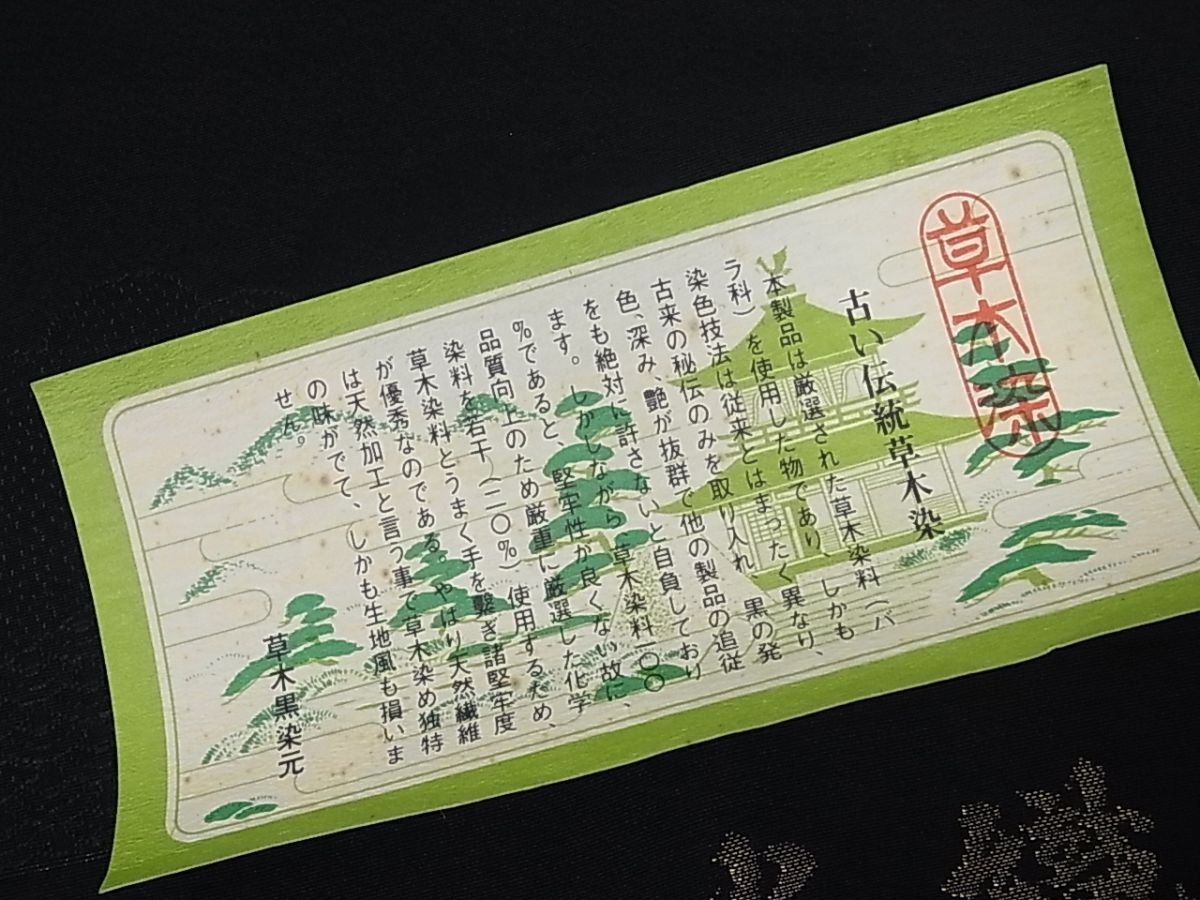 草木染
古い伝統草木染
本製品は厳選された草木染料（バ
ラ科）を使用した物であり、しかも
染色技法は従来とはまったく異なり、
古来の秘伝のみを取り入れ 黒の発
色、深み、艶が抜群で他の製品の追従
をも絶対に許さないと自負しており
ます。しかしながら 草木染料一〇〇
％であると、堅牢性が良くない故に、
品質向上のため厳重に厳選した化学
染料を若干（二〇％）使用するため、
草木染料とうまく手を繋ぎ諸堅牢度
が優秀なのである。やはり天然繊維
は天然加工と言う事で草木染め独特
の味がでて、しかも生地風も損いま
せん。
草木黒染元